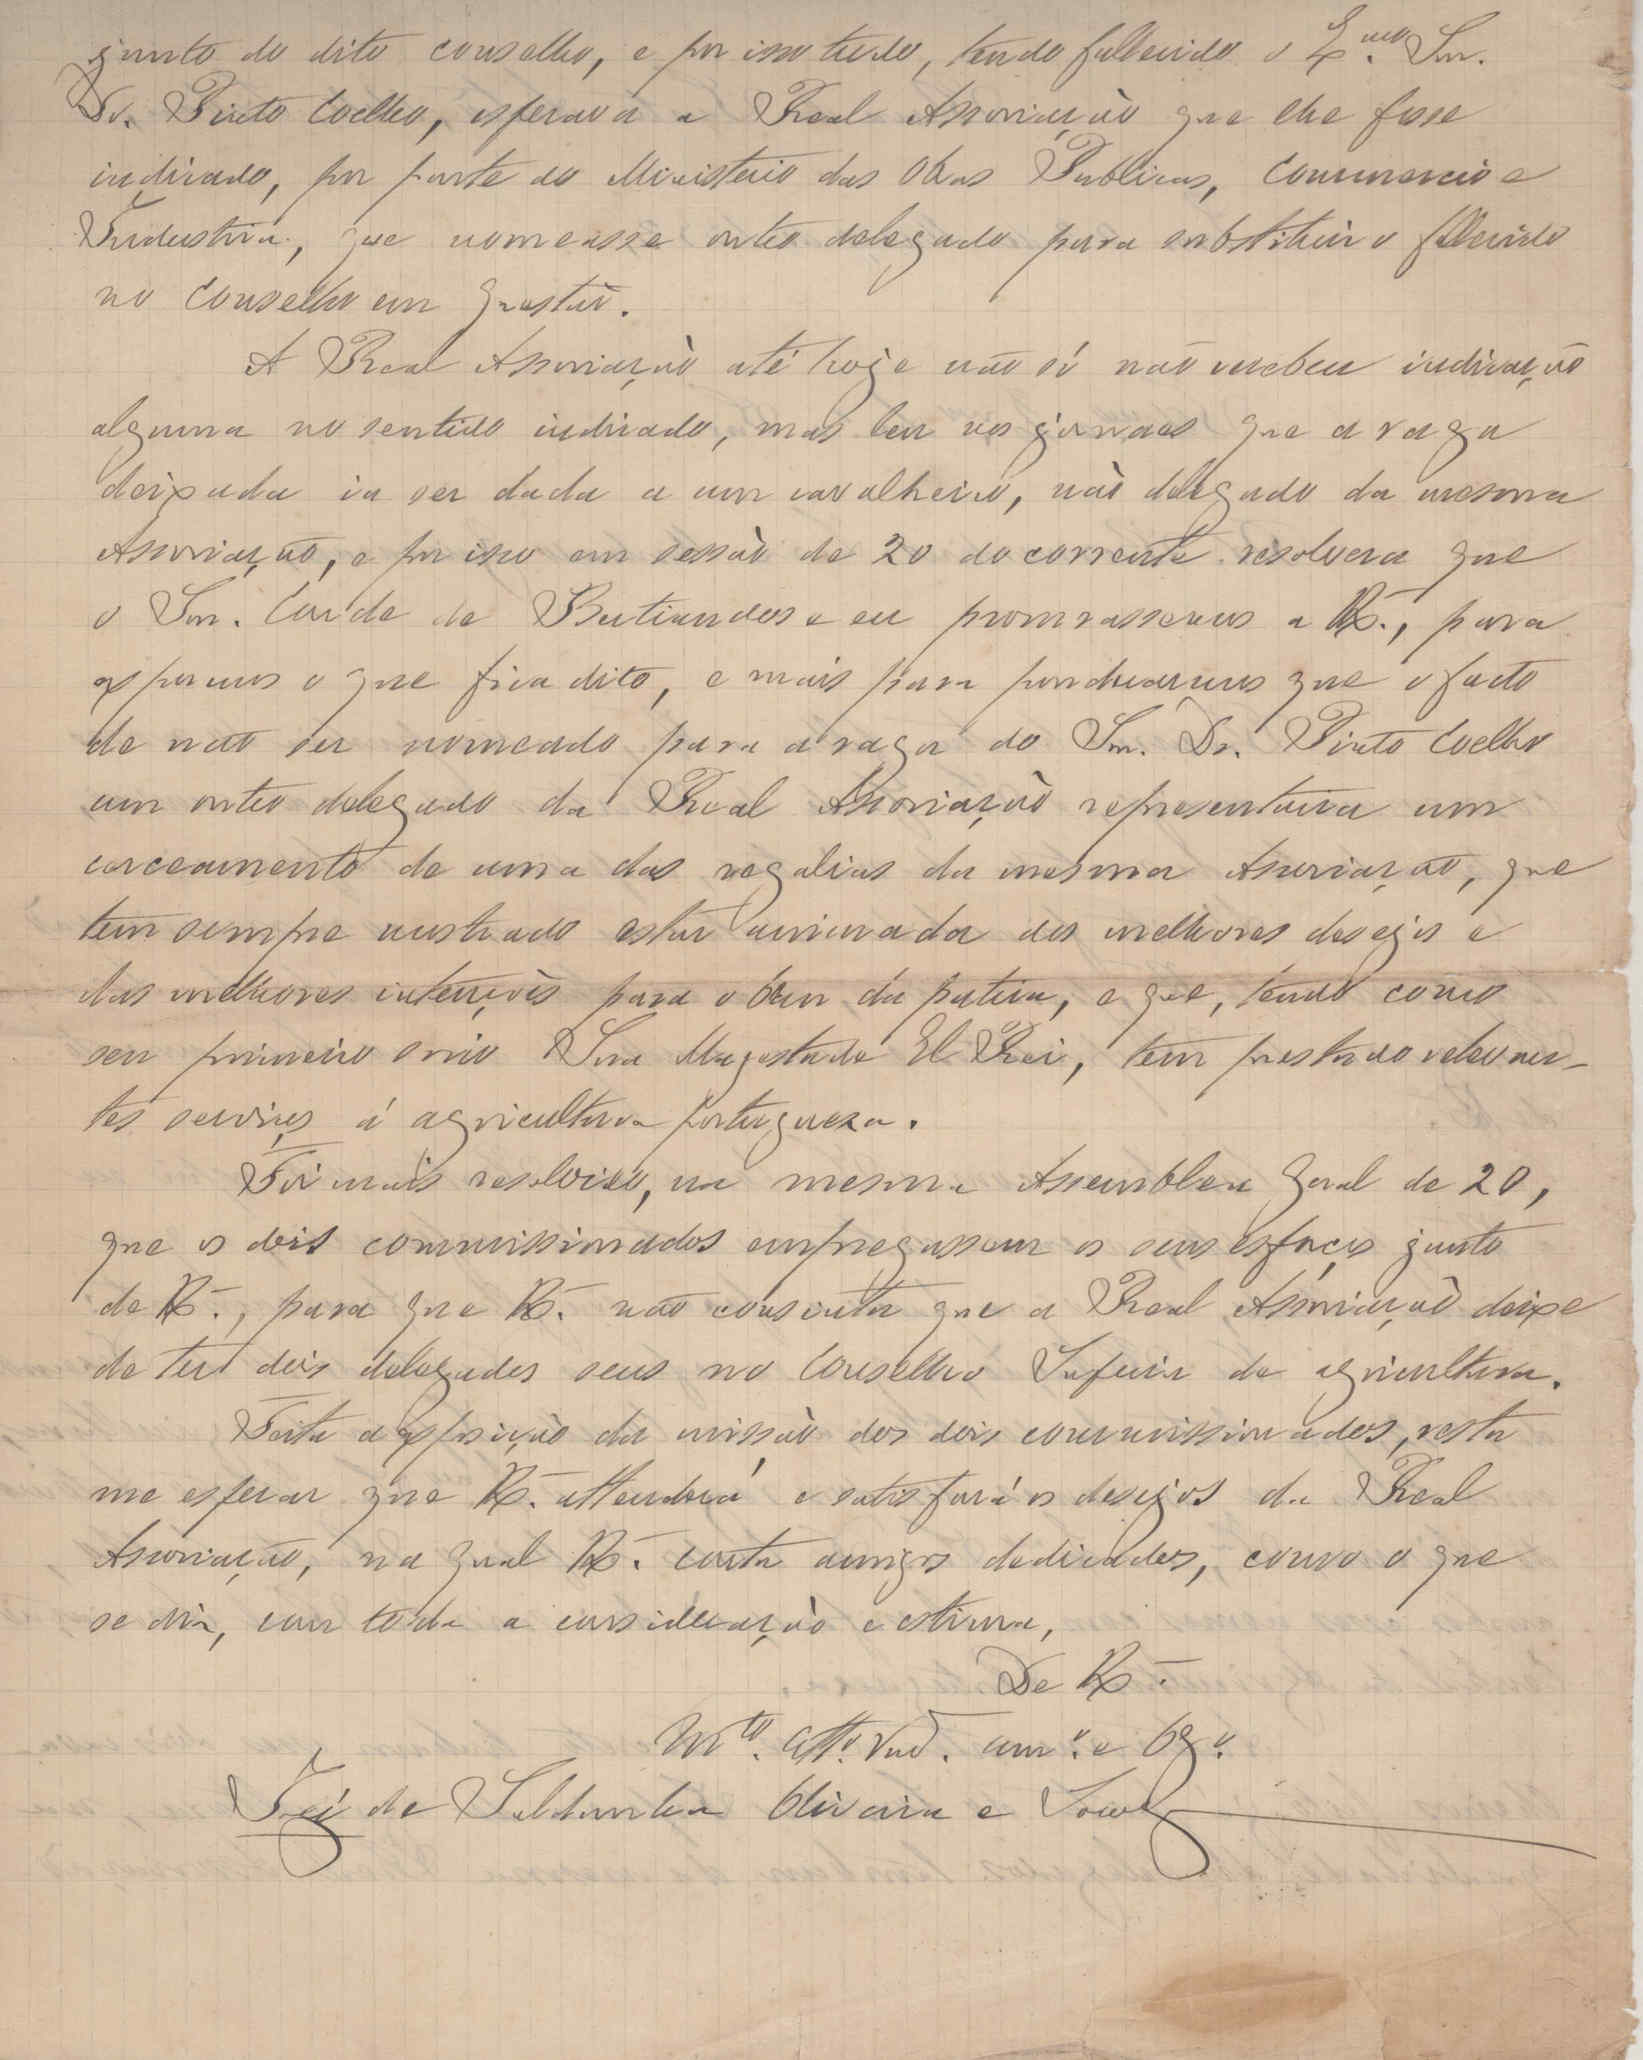 junto do dito conselho, e por isso tudo, tendo fallecido o Ex.mo Snr.
Dr. Pinto Coelho, esperava a Real Associação que lhe fosse
indicado, por parte do Ministerio das Obras Publicas, Commercio e
Industria, que nomeasse outro delegado para substituir o fallecido
no Conselho em questão.
A Real Associação até hoje não só não recebeu indicação
alguma no sentido indicado, mas leu nos jornaes que a vaga
deixada ia ser dada a um cavalheiro, não delegado da mesma
Associação, e por isso em sessão de 20 do corrente resolvera que
o Snr. Conde de Bertiandos e eu procurassemos a V. Ex.ª, para
expormos o que fica dito, e mais para ponderarmos que o facto
de não ser nomeado para a vaga do Snr. Dr. Pinto Coelho
um outro delegado da Real Associação representaria um
cerceamento de uma das regalias da mesma Associação, que
tem sempre mostrado estar animada dos melhores desejos e
das melhores intenções para o bem da patria, e que, tendo como
seu primeiro socio Sua Magestade El-Rei, tem prestado relevan-
tes serviços á agricultura portugueza.
Foi mais resolvido, na mesma Assemblea Geral de 20,
que os dois commissionados empregassem os seus esforços junto
de V. Ex.ª, para que V. Ex.ª não consinta que a Real Associação deixe
de ter dois delegados seus no Conselho Superior de agricultura.
Feita a exposição da missão dos dois commissionados, resta
me esperar que V. Ex.ª attenderá e satisfará os desejos da Real
Associação, na qual V. Ex.ª conta amigos dedicados, como o que
se diz, com toda a consideração e estima,
De V. Ex.ª
M.to att.o Ven.or am.o e Obg.o
José de Saldanha Oliveira e Souza